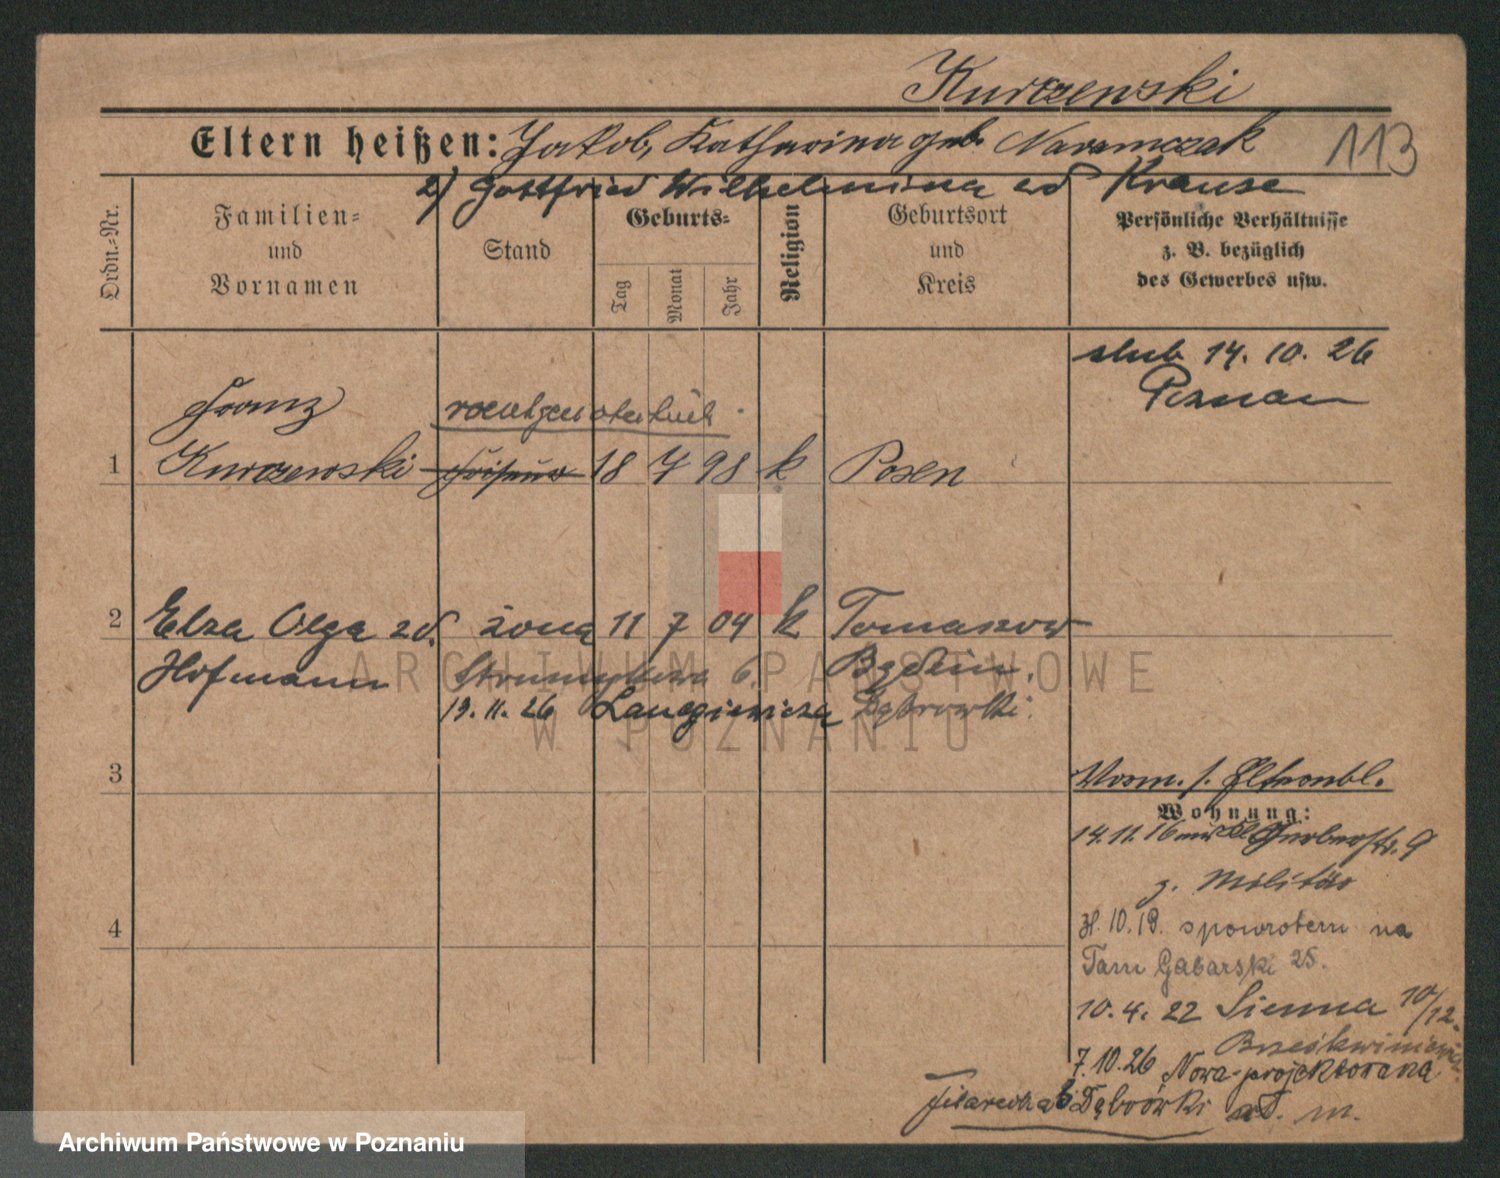 Kurczewski
Eltern heißen: Jakob, Katharina geb. Naramczak
113
2) Gottfried Wilhelmina zd Krause
Ordn.-Nr.
Familien-
und
Vornamen
Stand
Geburts-
Tag
Monat
Jahr
Religion
Geburtsort
und
Kreis
Persönliche Verhältnisse
z. B. bezüglich
des Gewerbes usw.
ślub 14. 10. 26
Poznań
Franz
1 Kurczewski 18 7 98 k Posen
2 Elza Olga zd. żona 11 7 04 k Tomaszow
Hofmann
19. 11. 26 Langiewicza Dąbrowski
3
Vorm. s. Elternbl.
Wohnung:
14. 11. 16 Gerberstr. 9
z. Militär
10. 19. spowrotem na
Tam Gabarski 25.
4
10. 4. 22 Sienna 10/12.
7. 10. 26 Nowo-projektowana
Filarecka 6 Dąbrówki
ARCHIWUM PAŃSTWOWE
W POZNANIU
Archiwum Państwowe w Poznaniu